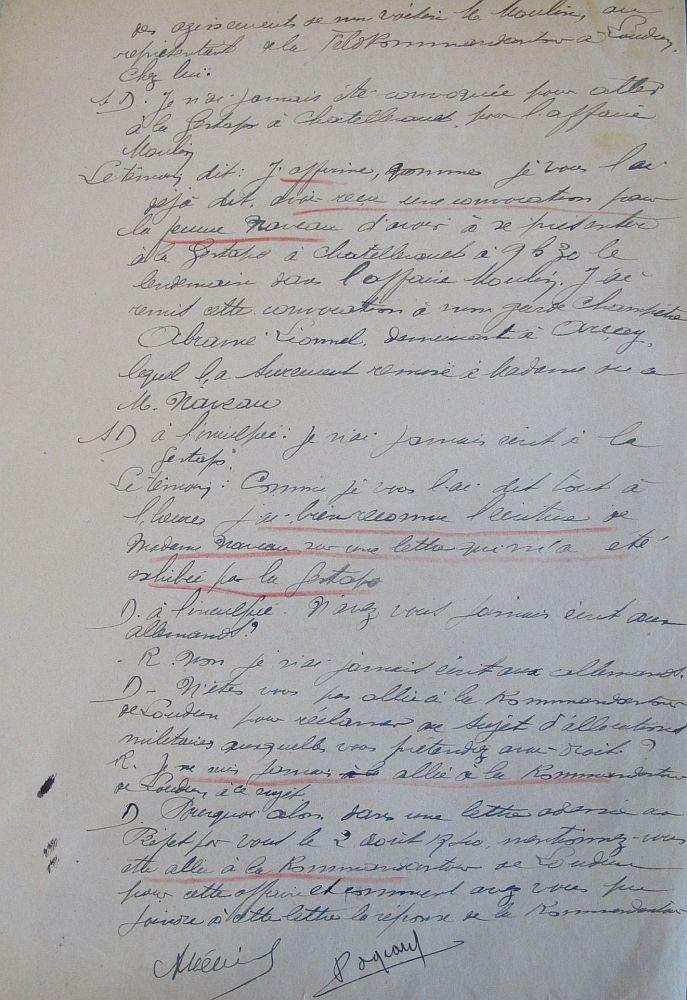 des agissements de mon voisin le Moulin, au
représentant de la Feldkommandantur à Loudun,
chez lui.
S D. Je n'ai jamais été convoquée pour aller
à la Gestapo à Chatellerault, pour l'affaire
Moulin
Le témoin dit: J'affirme, comme je vous l'ai
déjà dit, avoir reçu une convocation pour
la femme Naveau d'avoir à se présenter
à la Gestapo à Chatellerault à 9 h 30 le
lendemain dans l'affaire Moulin. J'ai
remis cette convocation à mon garde Champêtre
Abramé Lionnel, demeurant à Arçay,
lequel l'a surement remise à Madame ou à
M. Naveau
S D à l'inculpée: je n'ai jamais écrit à la
Gestapo.
Le témoin: Comme je vous l'ai dit tout à
l'heure j'ai bien reconnu l'écriture de
Madame Naveau sur une lettre qui m'a été
exhibée par la Gestapo
D. à l'inculpée. N'avez vous jamais écrit aux
allemands?
- R. Non je n'ai jamais écrit aux allemands.
D - N'êtes vous pas allée à la Kommandantur
de Loudun pour réclamer au sujet d'allocations
militaires auxquelles vous prétendez avoir droit?
R. Je ne suis jamais allée à la Kommandantur
de Loudun à ce sujet
D. Pourquoi alors dans une lettre adressée au
Préfet par vous le 2 août 1940, mentionnez-vous
être allée à la Kommandantur de Loudun
pour cette affaire et comment avez vous pu
joindre à cette lettre la réponse de la Kommandantur